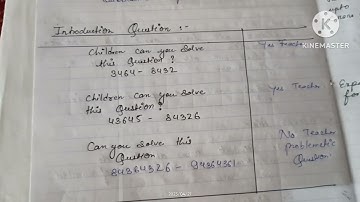 Introduction Question :-
Children can you solve
this Question ?
8464 - 8432
Yes Teacher
Children can you solve
this Question ?
43645 - 84326
Yes Teacher
Can you solve this
Question
84364326 - 94364361
No Teacher
problemetic
Question
KINEMASTER